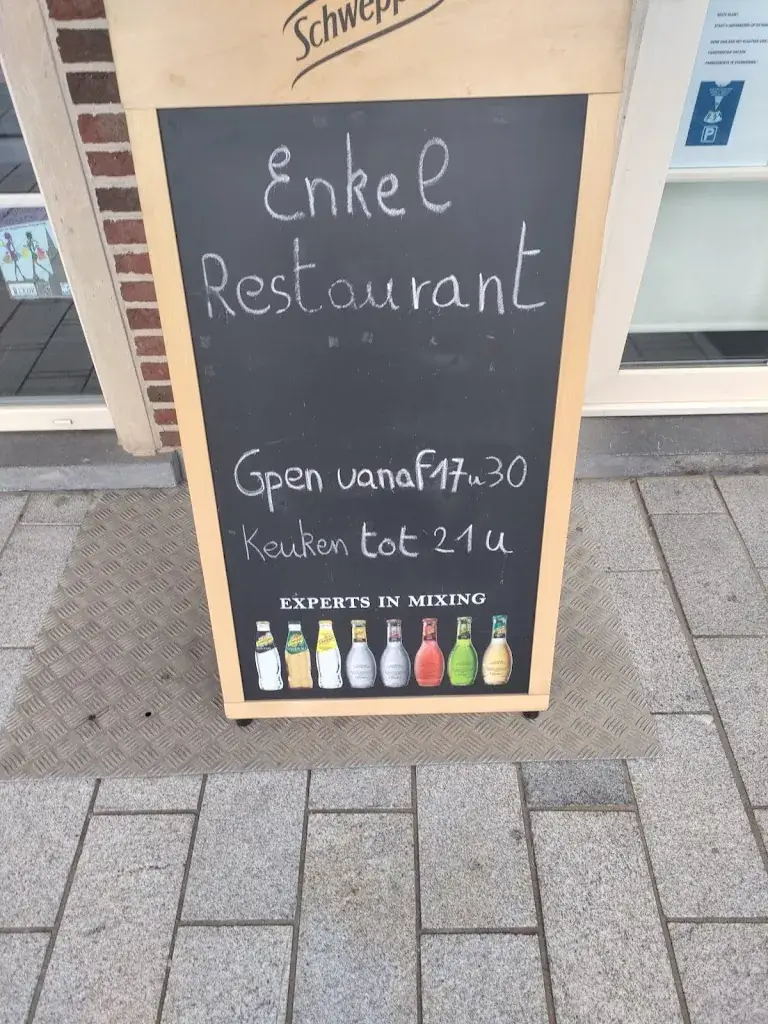 Schwepp
Enkel
Restaurant
Open vanaf 17u30
Keuken tot 21u
EXPERTS IN MIXING
P